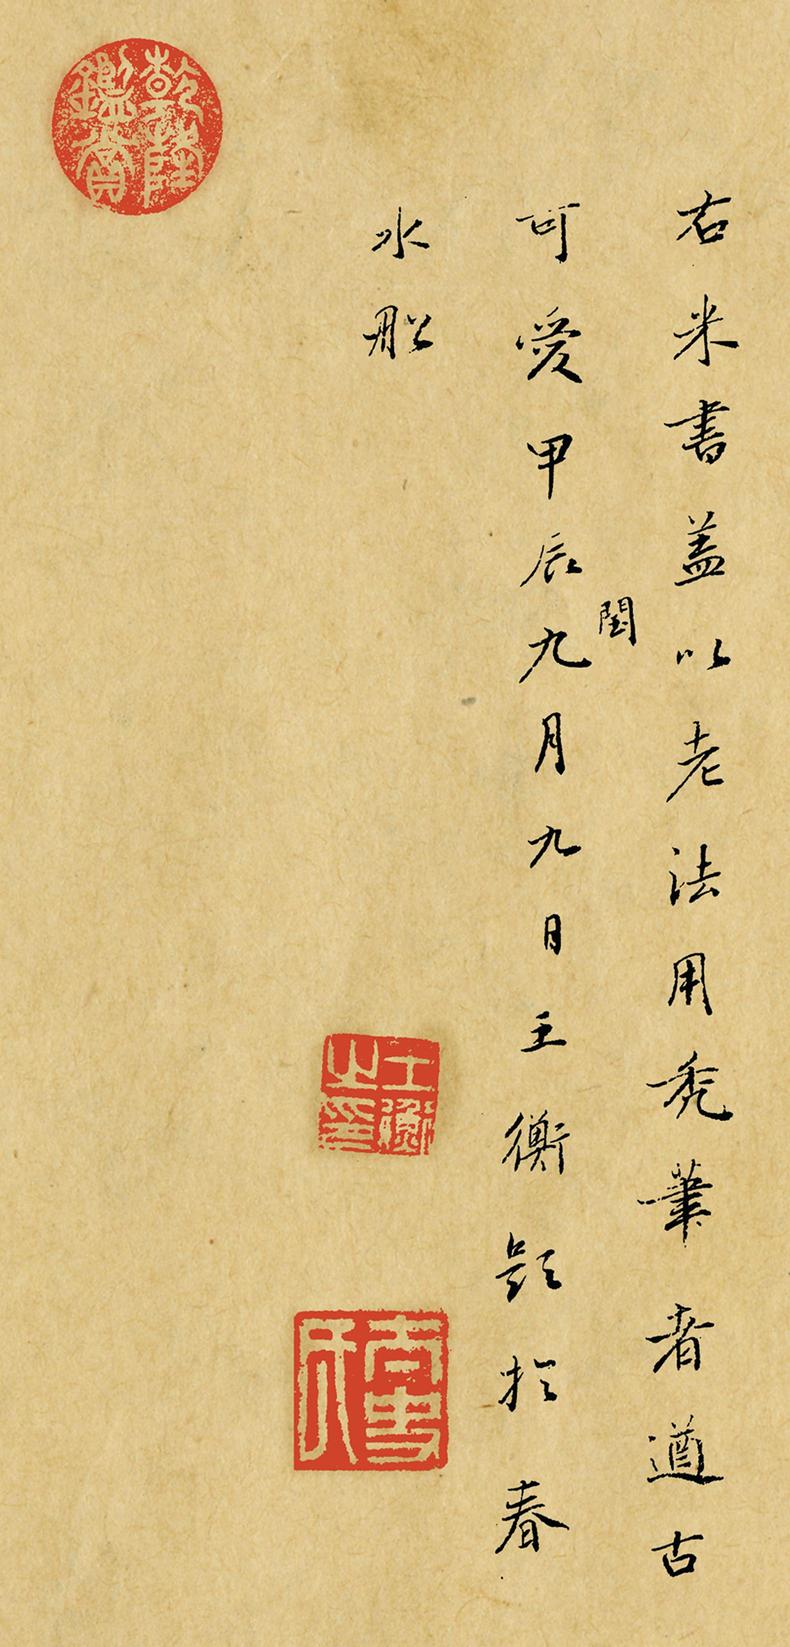 右米書盖以老法用秃筆者遒古
可愛甲辰閏九月九日王衡題扵春
水舩
乾隆鑑賞
王衡之印